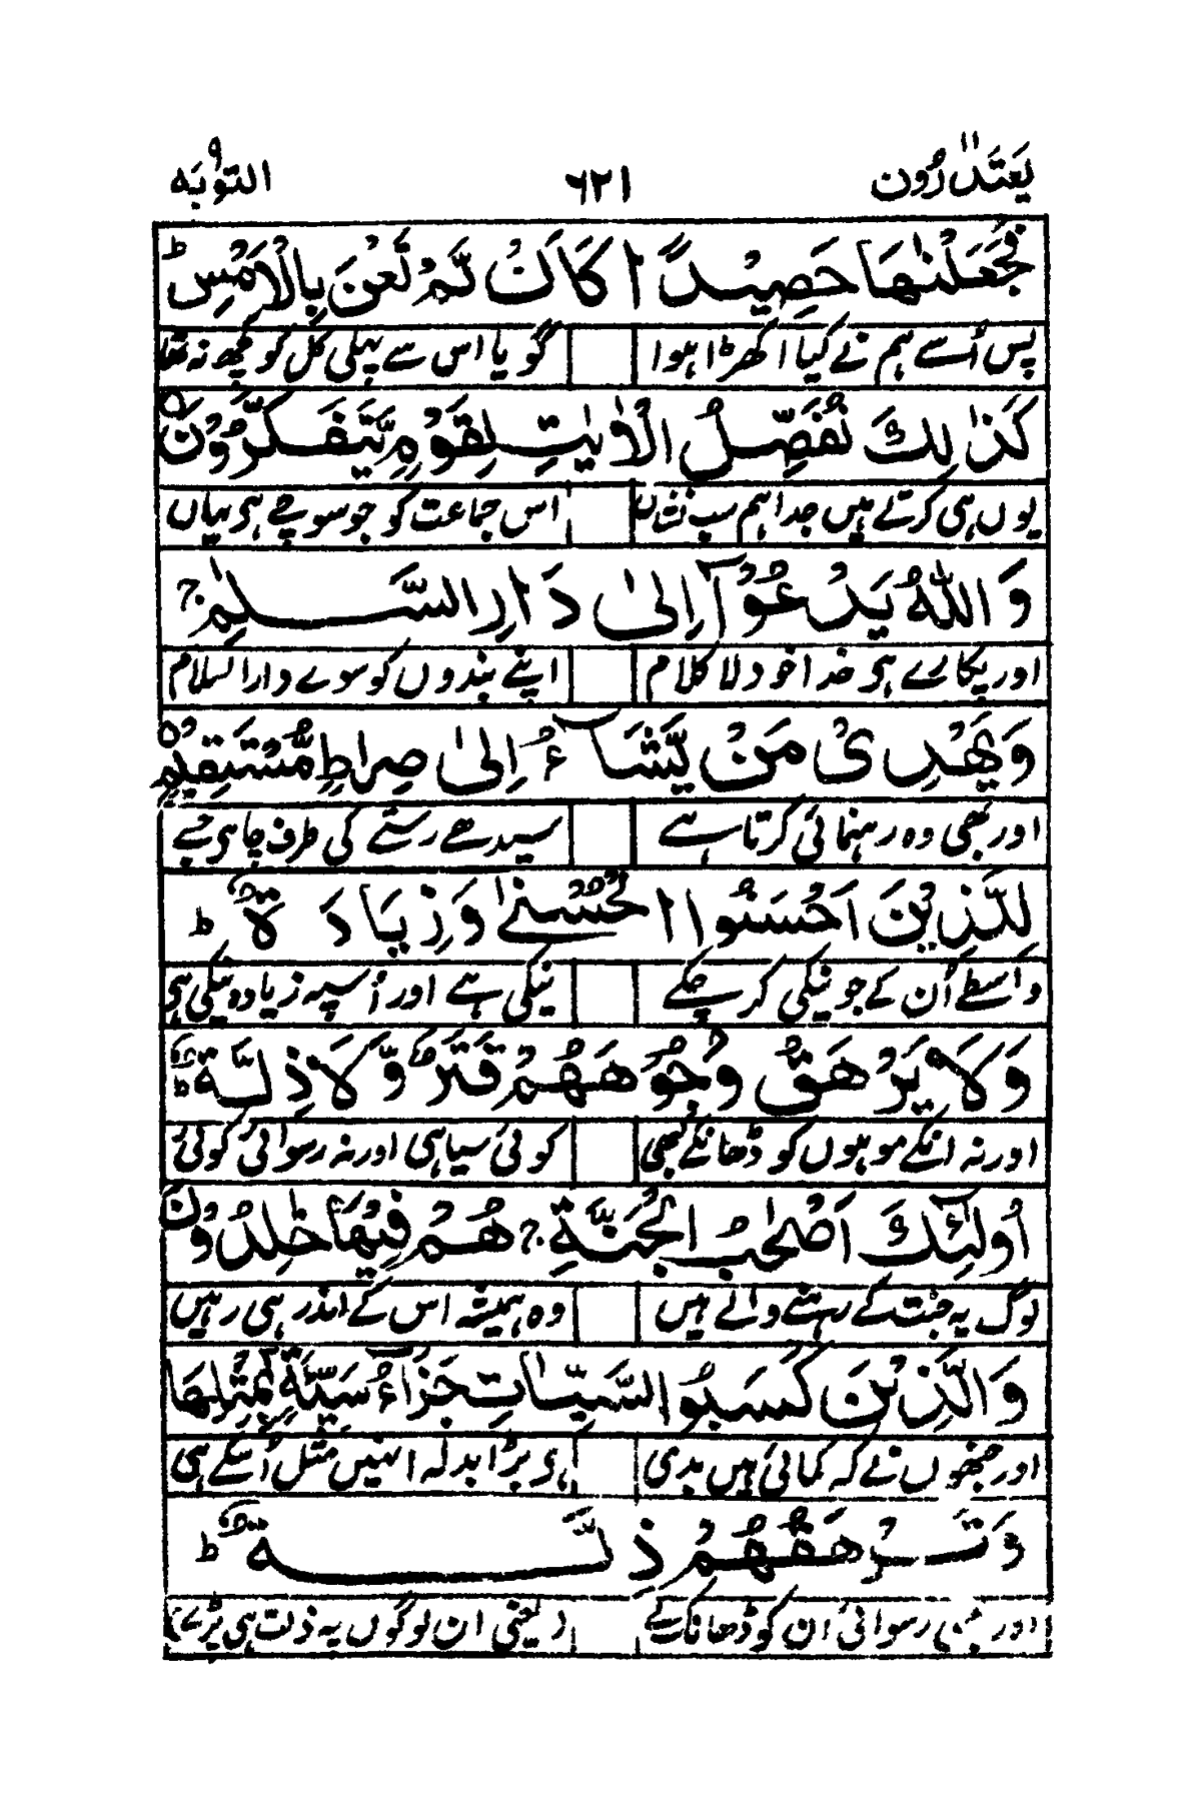 یعتذرون ١١ ٦٢١ التوبہ ٩
فَجَعَلْنٰهَا حَصِیْدًا کَاَنْ لَّمْ تَغْنَ بِالْاَمْسِ ؕ
پس اُسے ہم نے کیا اکھڑا ہوا گویا اس سے پہلی کل کو کچھ نہ تھا
کَذٰلِكَ نُفَصِّلُ الْاٰیٰتِ لِقَوْمٍ یَّتَفَکَّرُوْنَ
یوں ہی کرتے ہیں جدا ہم سب نشاں اس جماعت کو جو سوچے ہی بیاں
وَاللّٰهُ یَدْعُوْۤا اِلٰی دَارِ السَّلٰمِ ؕ
اور پکارے ہی خدا خود لا کلام اپنے بندوں کو سوے دار السلام
وَیَهْدِیْ مَنْ یَّشَآءُ اِلٰی صِرَاطٍ مُّسْتَقِیْمٍ
اور بھی وہ رہنمائی کرتا ہے سیدھے رستے کی طرف چاہی جسے
لِلَّذِیْنَ اَحْسَنُوا الْحُسْنٰی وَزِیَادَةٌ ؕ
واسطے اُن کے جو نیکی کر چکے نیکی ہے اور اُسپہ زیادہ نیکی ہی
وَلَا یَرْهَقُ وُجُوْهَهُمْ قَتَرٌ وَّلَا ذِلَّةٌ ؕ
اور نہ انکے موہوں کو ڈھانکے بھی کوئی سیاہی اور نہ رسوائی کوئی
اُولٰٓئِكَ اَصْحٰبُ الْجَنَّةِ ۚ هُمْ فِیْهَا خٰلِدُوْنَ
لوگ یہ جنت کے رہنے والے ہیں وہ ہمیشہ اس کے اندر ہی رہیں
وَالَّذِیْنَ کَسَبُوا السَّیِّاٰتِ جَزَآءُ سَیِّئَةٍۭ بِمِثْلِهَا
اور جنھوں نے کہ کمائی ہیں بدی بڑا بدلہ انہیں مثل اُسکے ہی
وَتَرْهَقُهُمْ ذِلَّةٌ ؕ
اور رسوائی اُن کو ڈھانک لے (یعنی ان لوگوں پہ ذلت ہی پڑے)